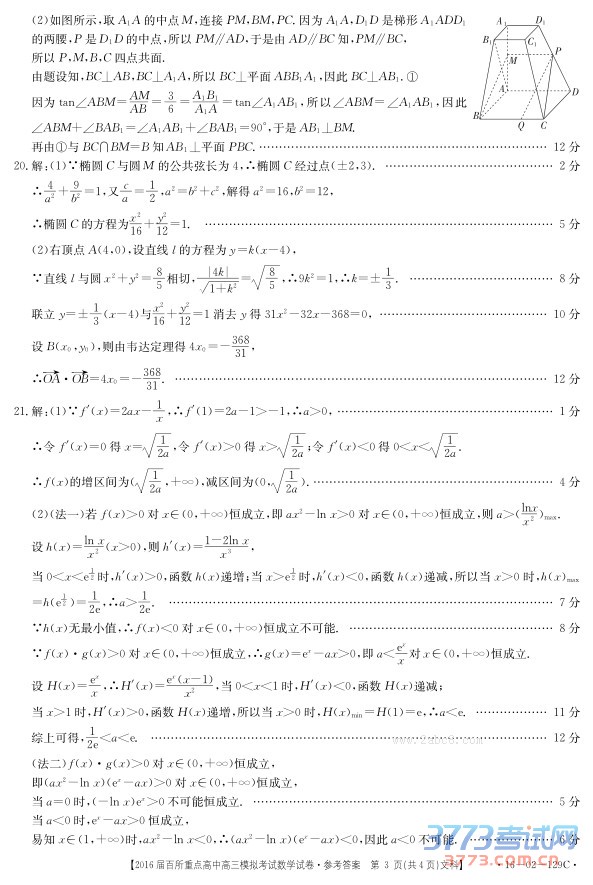 (2)如图所示,取A₁A的中点M,连接PM,BM,PC.因为A₁A,D₁D是梯形A₁ADD₁
的两腰,P是D₁D的中点,所以PM∥AD,于是由AD∥BC知,PM∥BC,
所以P,M,B,C四点共面.
由题设知,BC⊥AB,BC⊥A₁A,所以BC⊥平面ABB₁A₁,因此BC⊥AB₁.①
因为tan∠ABM=AM/AB=3/6=A₁B₁/A₁A=tan∠A₁AB₁,所以∠ABM=∠A₁AB₁,因此
∠ABM+∠BAB₁=∠A₁AB₁+∠BAB₁=90°,于是AB₁⊥BM.
再由①与BC∩BM=B知AB₁⊥平面PBC. 12分
A₁ D₁ B₁ C₁ P M A D B Q C
20.解:(1)∵椭圆C与圆M的公共弦长为4,∴椭圆C经过点(±2,3). 2分
∴4/a²+9/b²=1,又c/a=1/2,a²=b²+c²,解得a²=16,b²=12,
∴椭圆C的方程为x²/16+y²/12=1. 5分
(2)右顶点A(4,0),设直线l的方程为y=k(x-4),
∵直线l与圆x²+y²=8/5相切,|4k|/√(1+k²)=√(8/5),∴9k²=1,∴k=±1/3. 8分
联立y=±1/3(x-4)与x²/16+y²/12=1消去y得31x²-32x-368=0, 10分
设B(x₀,y₀),则由韦达定理得4x₀=-368/31,
∴OA·OB=4x₀=-368/31. 12分
21.解:(1)∵f′(x)=2ax-1/x,∴f′(1)=2a-1>-1,∴a>0, 1分
∴令f′(x)=0得x=√(1/2a),令f′(x)>0得x>√(1/2a);令f′(x)<0得0<x<√(1/2a).
∴f(x)的增区间为(√(1/2a),+∞),减区间为(0,√(1/2a)). 4分
(2)(法一)若f(x)>0对x∈(0,+∞)恒成立,即ax²-ln x>0对x∈(0,+∞)恒成立,则a>(lnx/x²)max.
设h(x)=ln x/x²(x>0),则h′(x)=(1-2ln x)/x³,
当0<x<e^(1/2)时,h′(x)>0,函数h(x)递增;当x>e^(1/2)时,h′(x)<0,函数h(x)递减,所以当x>0时,h(x)max
=h(e^(1/2))=1/2e,∴a>1/2e. 7分
∵h(x)无最小值,∴f(x)<0对x∈(0,+∞)恒成立不可能. 8分
∵f(x)·g(x)>0对x∈(0,+∞)恒成立,∴g(x)=eˣ-ax>0,即a<eˣ/x对x∈(0,+∞)恒成立.
设H(x)=eˣ/x,∴H′(x)=eˣ(x-1)/x²,当0<x<1时,H′(x)<0,函数H(x)递减;
当x>1时,H′(x)>0,函数H(x)递增,所以当x>0时,H(x)min=H(1)=e,∴a<e. 11分
综上可得,1/2e<a<e. 12分
(法二)f(x)·g(x)>0对x∈(0,+∞)恒成立,
即(ax²-ln x)(eˣ-ax)>0对x∈(0,+∞)恒成立,
当a=0时,(-ln x)eˣ>0不可能恒成立. 5分
当a<0时,eˣ-ax>0恒成立,
易知x∈(1,+∞)时,ax²-ln x<0,∴(ax²-ln x)(eˣ-ax)<0,因此a<0不可能. 6分
3773考试网
【2016届百所重点高中高三模拟考试数学试卷·参考答案 第3页(共4页)文科】 ·16-02-129C·